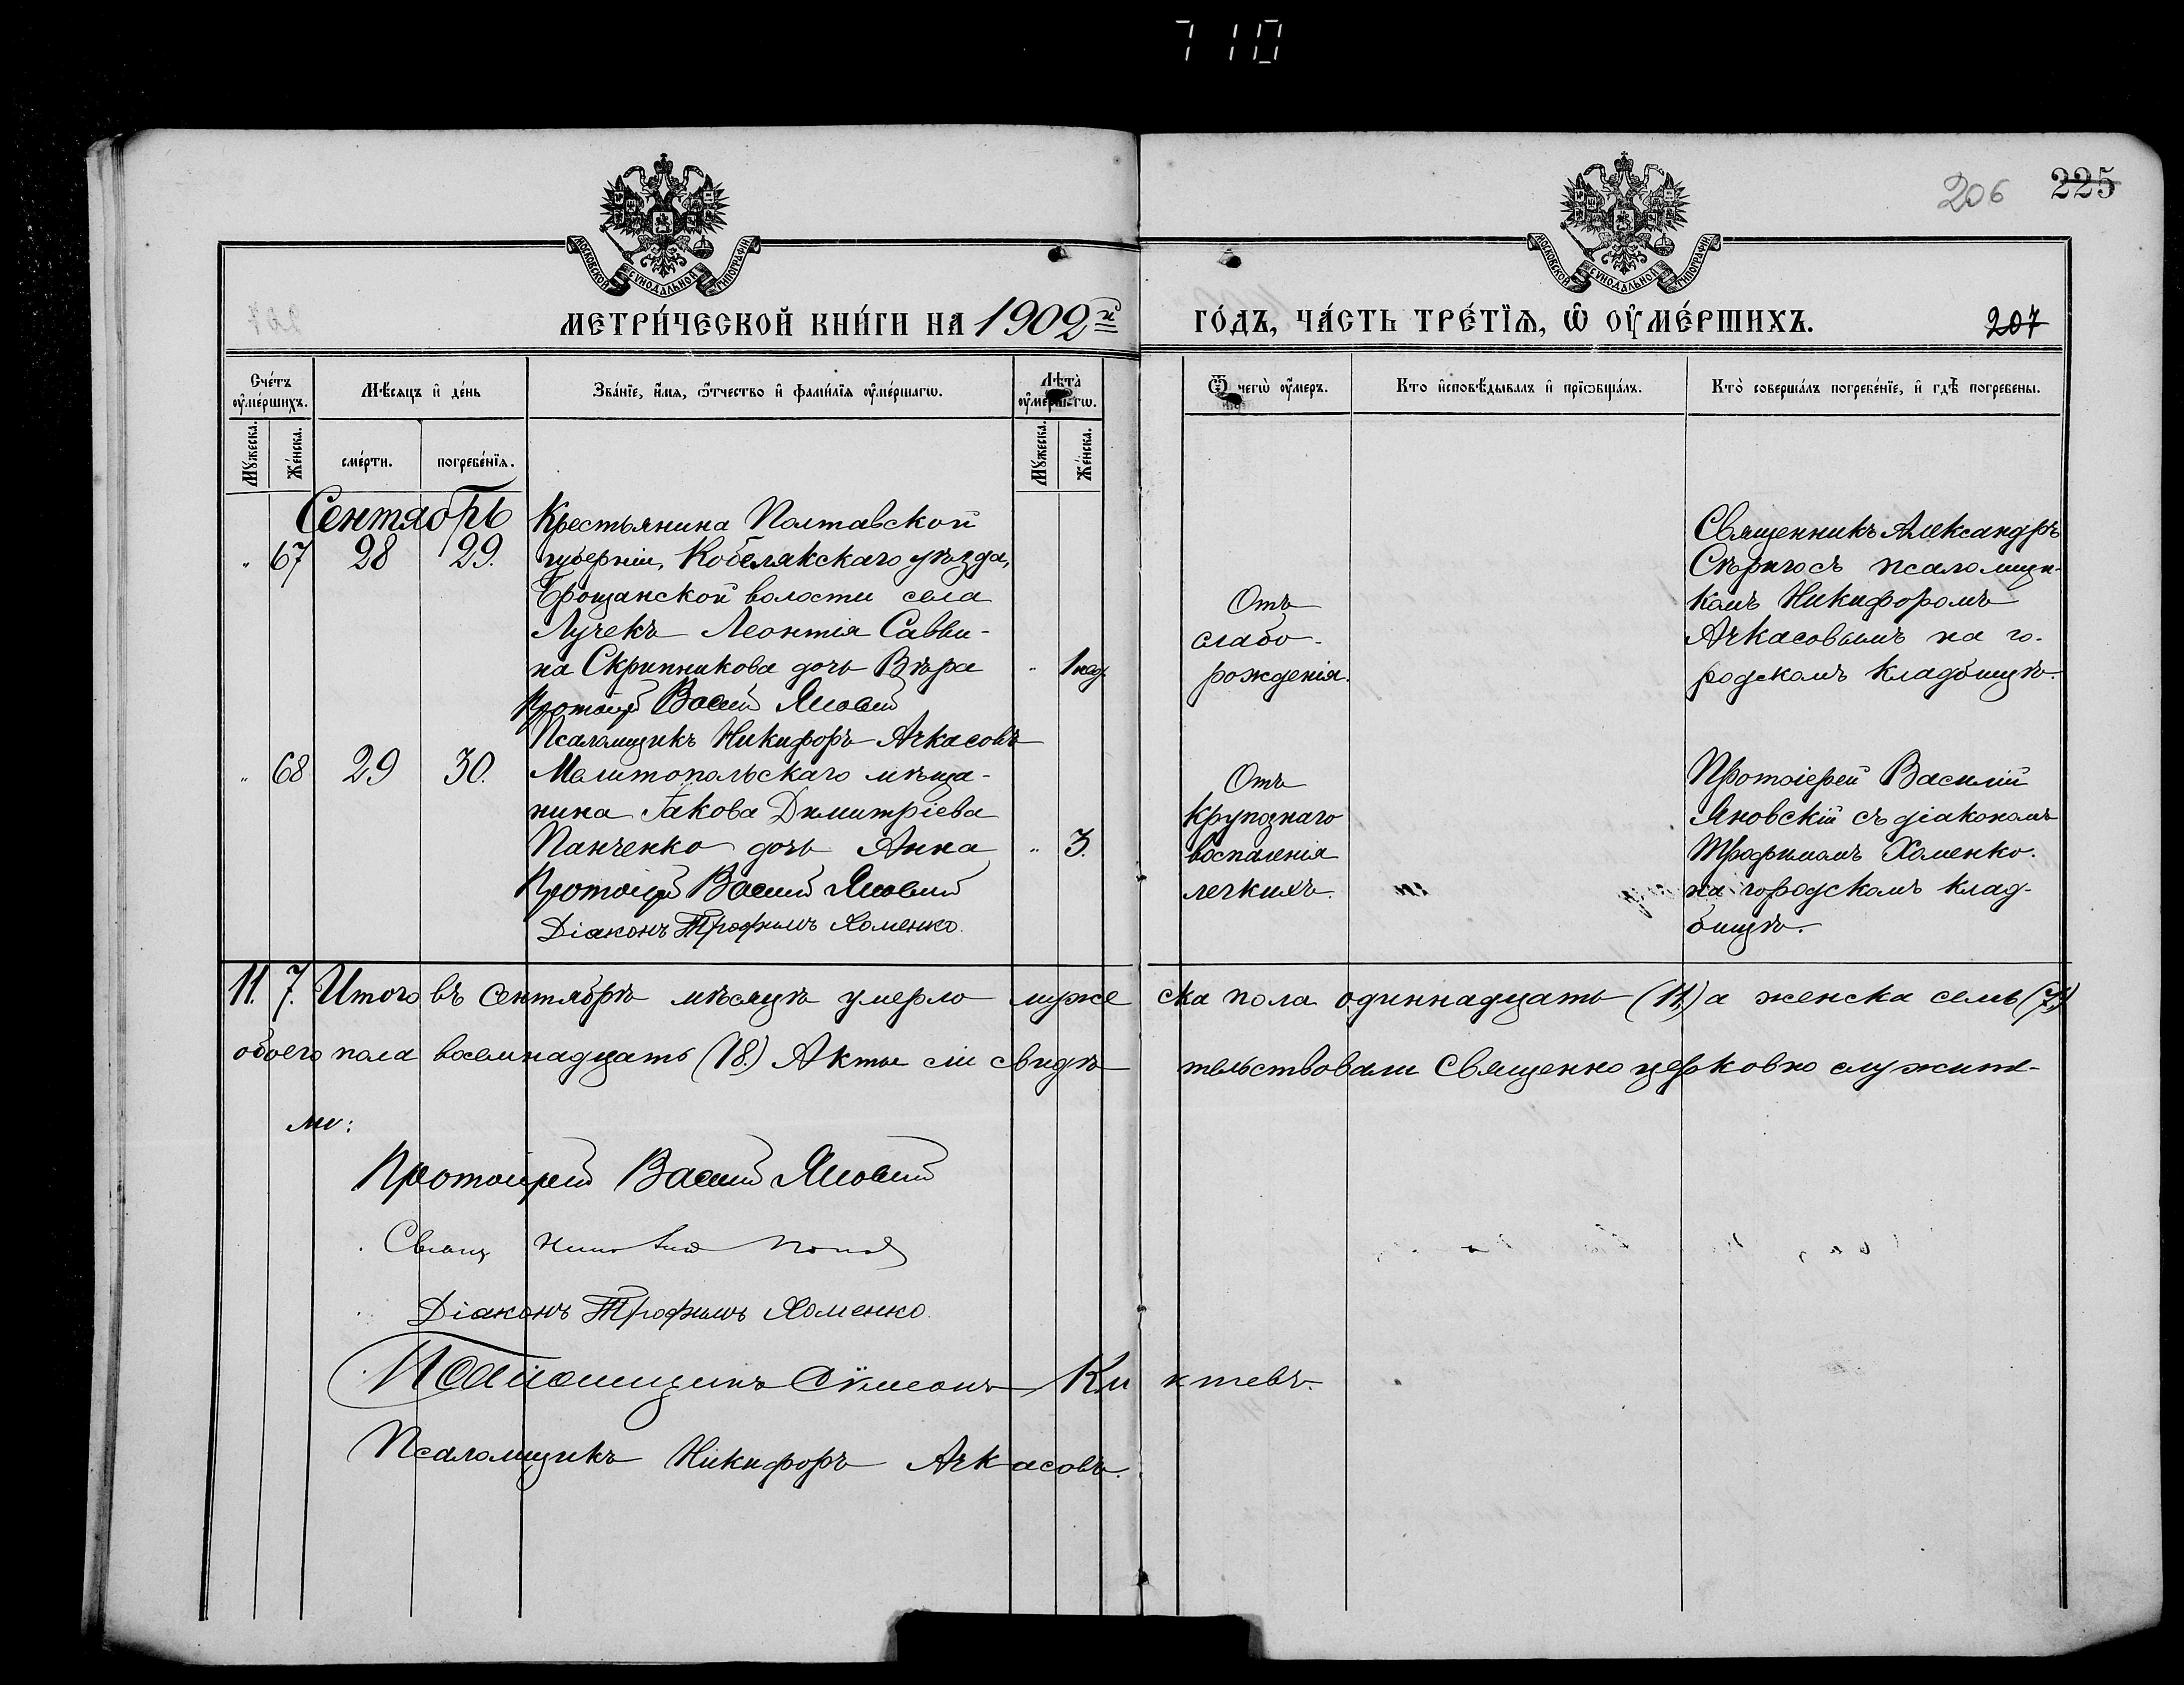 710
206 225
МОСКОВСКОЙ СѴНОДАЛЬНОЙ ТИПОГРАФІИ
МОСКОВСКОЙ СѴНОДАЛЬНОЙ ТИПОГРАФІИ
МЕТРИ́ЧЕСКОЙ КНИ́ГИ НА 1909й
ГО́ДЪ, ЧА́СТЬ ТРЕ́ТЇѦ, Ѡ ОУ҆МЕ́РШИХЪ. 207
Сче́тъ оу҆ме́ршихъ.
Мѣ́сѧцъ и҆ де́нь
Зва́нїе, и҆́мѧ, ѻ҆́тчество и҆ фамі́лїѧ оу҆ме́ршагѡ.
Лѣ́та оу҆ме́ршагѡ.
Ѿ чегѡ̀ оу҆́меръ.
Кто и҆сповѣ́дывалъ и҆ прїѡбща́лъ.
Кто̀ соверша́лъ погребе́нїе, и҆ гдѣ̀ погребены.
Мꙋ́жеска.
Же́нска.
сме́рти.
погребе́нїѧ.
Мꙋ́жеска.
Же́нска.
Сентябрь
" 67 28 29.
Крестьянина Полтавской
губерніи, Кобелякскаго уѣзда,
Брощанской волости села
Лучекъ Леонтія Савви-
на Скрипникова дочь Вѣра " 1 нед.
Протоіерей Василій Яновскій
Псаломщикъ Никифоръ Ачкасовъ
Отъ
слабо-
рожденія.
Священникъ Александръ
псаломщи-
комъ Никифоромъ
Ачкасовымъ на го-
родскомъ кладбищѣ.
" 68 29 30.
Мелитопольскаго мѣща-
нина Іакова Димитріева
Панченко дочь Анна " 3.
Протоіерей Василій Яновскій
Діаконъ Трофимъ Хоменко.
Отъ
крупознаго
воспаленія
легкихъ.
Протоіерей Василій
Яновскій съ діакономъ
Трофимомъ Хоменко.
на городскомъ клад-
бищѣ.
11. 7. Итого въ Сентябрѣ мѣсяцѣ умерло муже ска пола одиннадцать (11.) а женска семь (7.)
обоего пола восемнадцать (18.) Акты сіи свидѣ тельствовали Священно церковно служите-
ли:
Протоіерей Василій Яновскій
Свящ.
Діаконъ Трофимъ Хоменко.
Псаломщикъ Сѵмеонъ
Псаломщикъ Никифоръ Ачкасовъ.